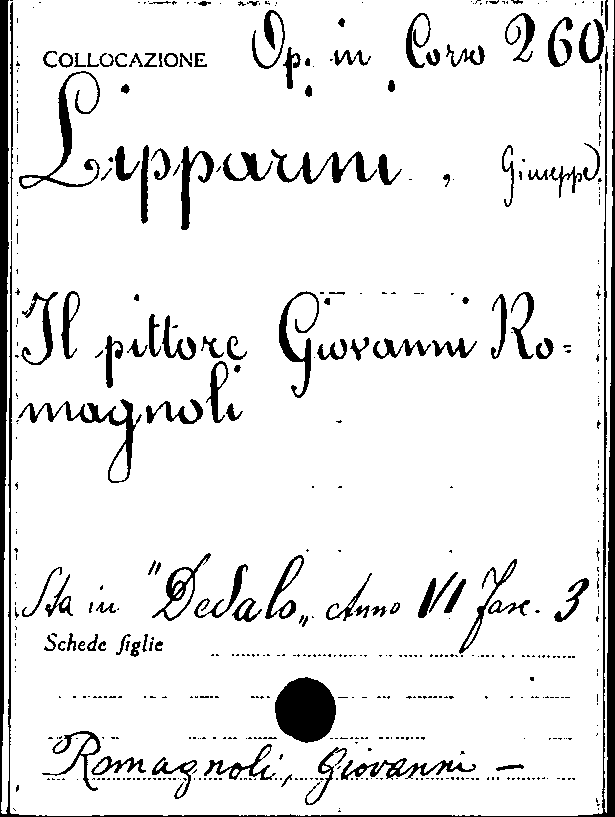 COLLOCAZIONE Op. in Corso 260
Lipparini, Giuseppe.
Il pittore Giovanni Ro=
magnoli
Sta in "Dedalo„ Anno VI Fasc. 3
Schede figlie
Romagnoli, Giovanni -